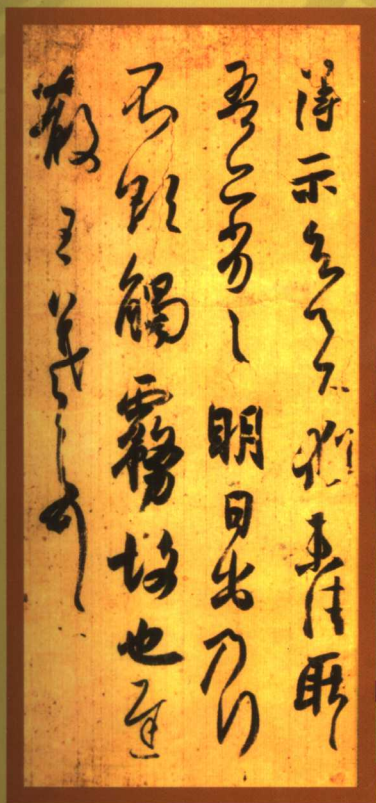 得示知足下猶未佳耿〻
吾亦劣〻明日出乃行
不欲觸霧故也遲
散王羲之頓首